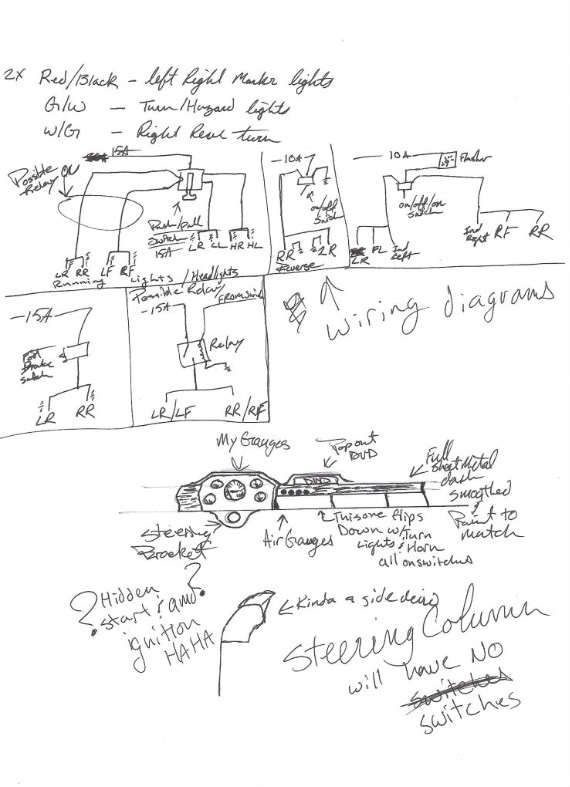 2x Red/Black - left Right Marker lights
G/W - Turn/Hazard lights
W/G - Right Rear turn
Possible
Relay
15A
Push/Pull
Switch
15A
LR RR LF RF
Running
LR LL HR HL
Lights / Headlights
-10A
on/off
Switch
RR LR
Reverse
10A
Flasher
on/off/on
Switch
LR FL Ind
Left
Ind
Right RF RR
-15A-
Foot
Brake
Switch
LR RR
Possible Relay
-15A
Relay
LR/LF RR/RF
Wiring diagrams
My Gauges
Popout
DVD
DVD
Full
Sheet Metal
dash
smoothed
&
Paint to
match
Steering
Bracket
Air Gauges
This one flips
Down w/Turn
Lights & Horn
all on switches
? Hidden ?
start and
ignition
HAHA
Kinda a side view
Steering Column
will have NO
switches
switches